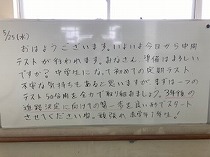 5/25(水)
おはようございます。いよいよ今日から中間
テストが行われます。みなさん、準備はよろしい
ですか？中学生になって初めての定期テスト
不安な気持ちもあると思いますが、まずは一つの
テスト50分間を全力で取り組みましょう。3年後の
進路決定に向けての第一歩を良い形でスタート
させてくださいね。頑張れ 1年生！